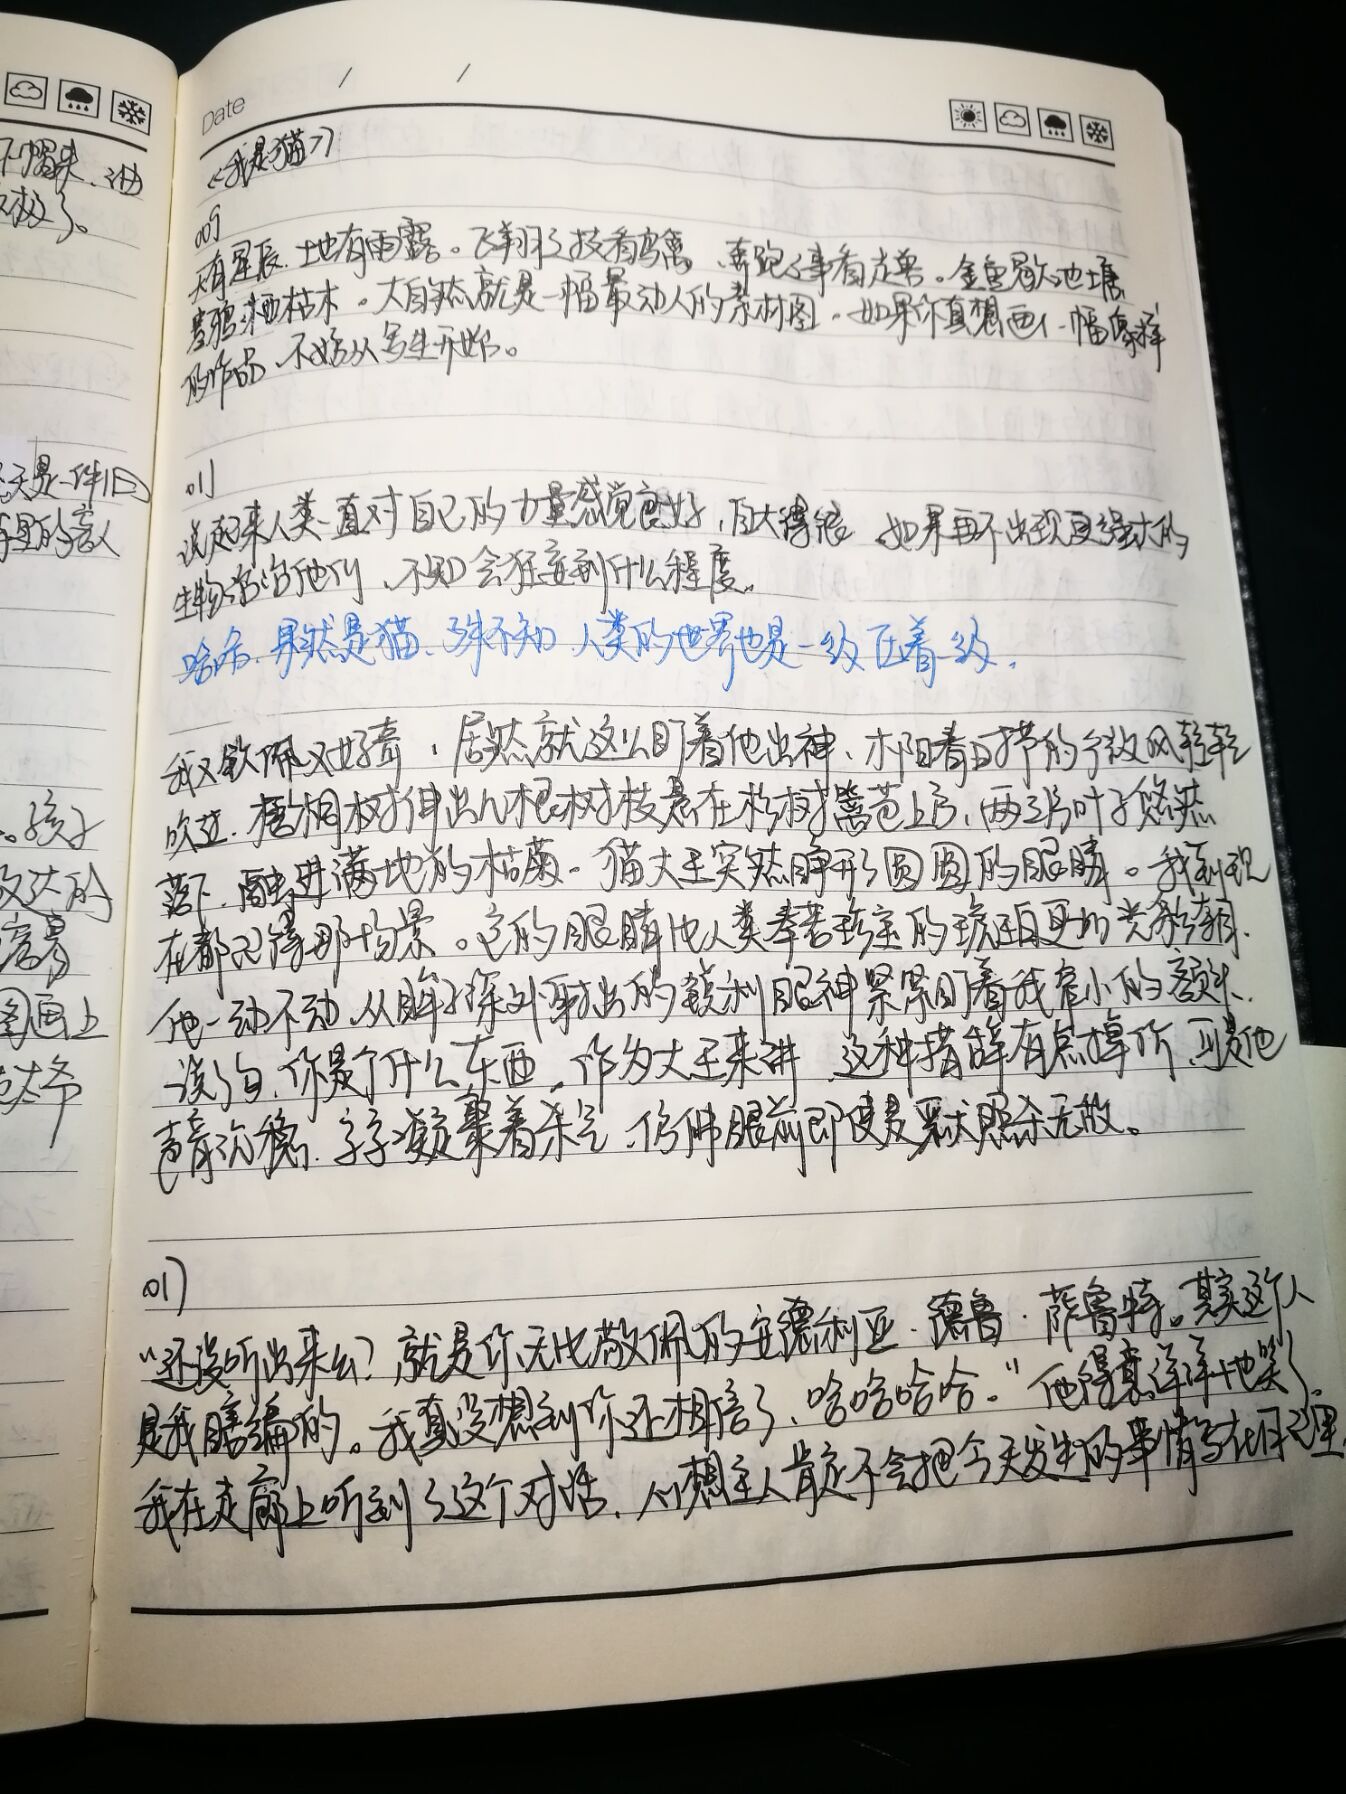 不惯来、油
极了。
天是一件旧
里的客人
。孩子
发达的
容易
图画上
Date / /
《我是猫》
009
天有星辰、土地有雨露。飞翔了技看鸟禽、奔跑之事看走兽。金鱼戏池塘
寒鸦栖枯木。大自然就是一幅最动人的素材图。如果你真想画一幅像样
的作品、不妨从写生开始。
011
说起来人类一直对自己的力量感觉良好，自大得很 如果再不出现更强大的
生物治治他们、不知会狂妄到什么程度。
哈哈、果然是猫、殊不知、人类的世界也是一级压着一级。
我又钦佩又好奇，居然就这么盯着他出神、小阳春时节的微风轻轻
吹过、梧桐树伸出几根树枝悬在松树篱笆上方、两三片叶子悠然
落下、融进满地的枯菊。猫大王突然睁开了圆圆的眼睛。我到现
在都记得那场景。它的眼睛比人类奉若珍宝的琥珀更加光彩夺目、
他一动不动、从眸子深处射出的锐利眼神紧紧盯着我窄小的额头、
说了句、你是个什么东西。作为大王来讲、这种措辞有点掉价、可是他
声音沉稳、字字凝聚着杀气、仿佛眼前即使是恶犬照杀无赦。
017
“还没听出来么？就是你无比敬佩的安德利亚·德鲁·萨鲁特。其实这个人
是我瞎编的。我真没想到你还相信了、哈哈哈哈。”他得意洋洋地笑了。
我在走廊上听到了这个对话、心想主人肯定不会把今天发生的事情写在日记里